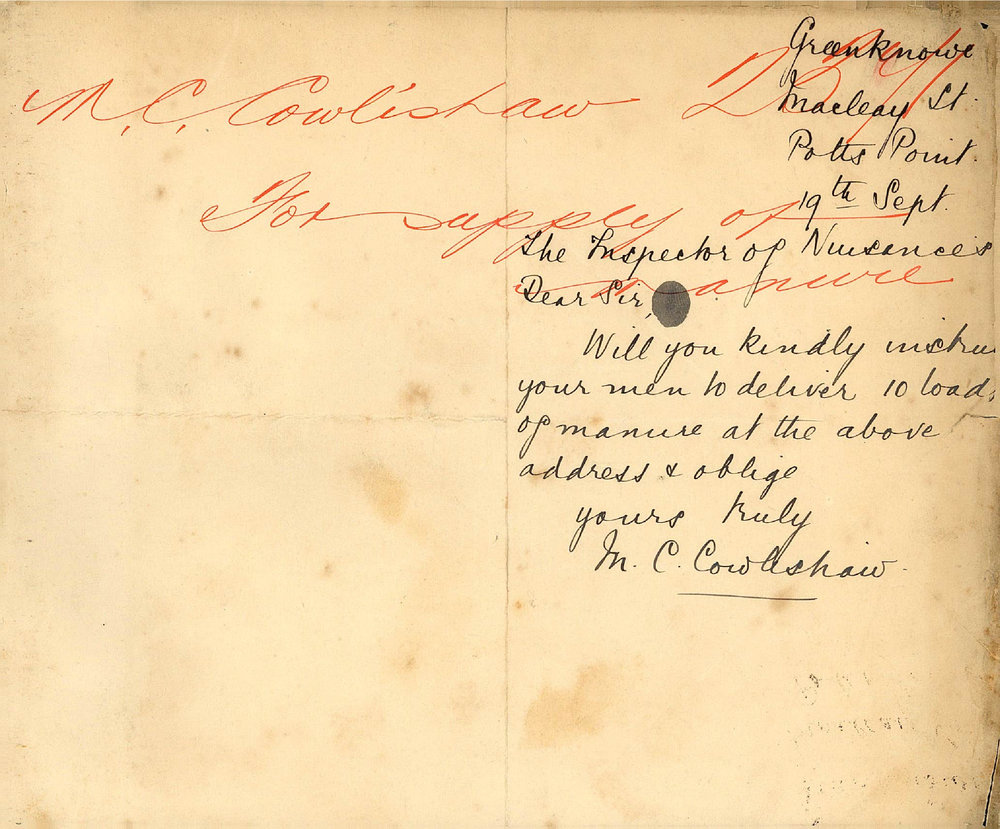 M. C. Cowlishaw
For supply of
manure
Greenknowe
Macleay St.
Potts Point.
19th Sept.
The Inspector of Nuisances
Dear Sir,
Will you kindly instru
your men to deliver 10 loads
of manure at the above
address & oblige
yours truly
M. C. Cowlishaw.